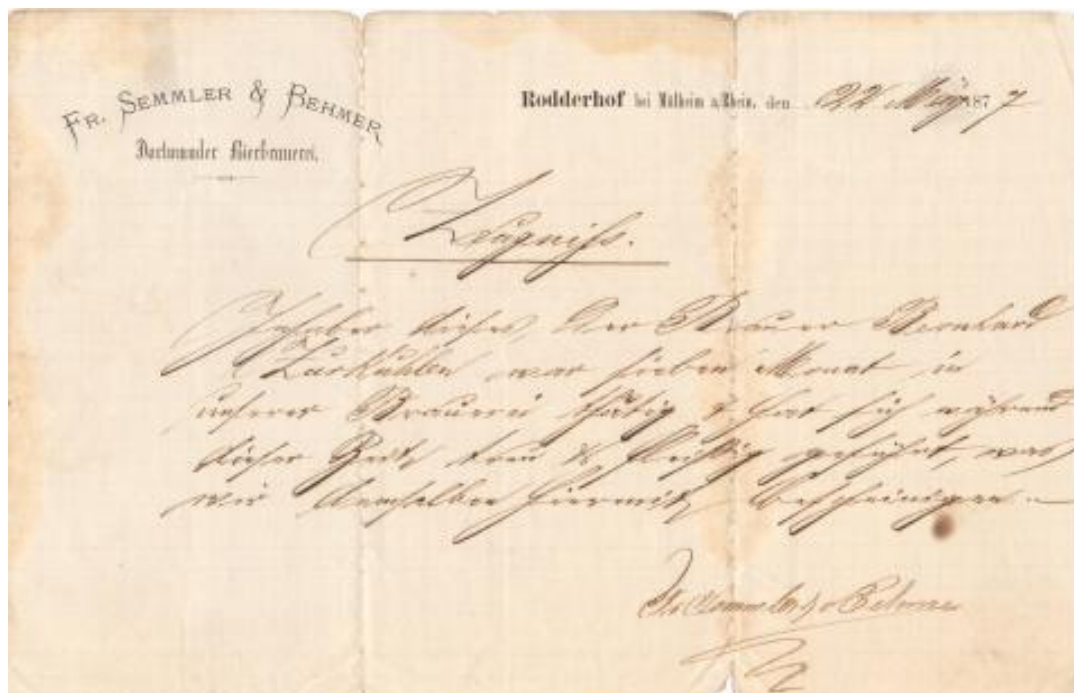 FR. SEMMLER & BEHMER
Dortmunder Bierbrauerei.
Rodderhof bei Mülheim a/Rhein, den 22 März 1877
Zeugniss.
Inhaber dieses, der Brauer Bernhard
Zurkuhlen war sieben Monat in
unserer Brauerei thätig & hat sich während
dieser Zeit, treu & fleißig geführt, was
wir demselben hiermit bescheinigen
Fr. Semmler & Behmer